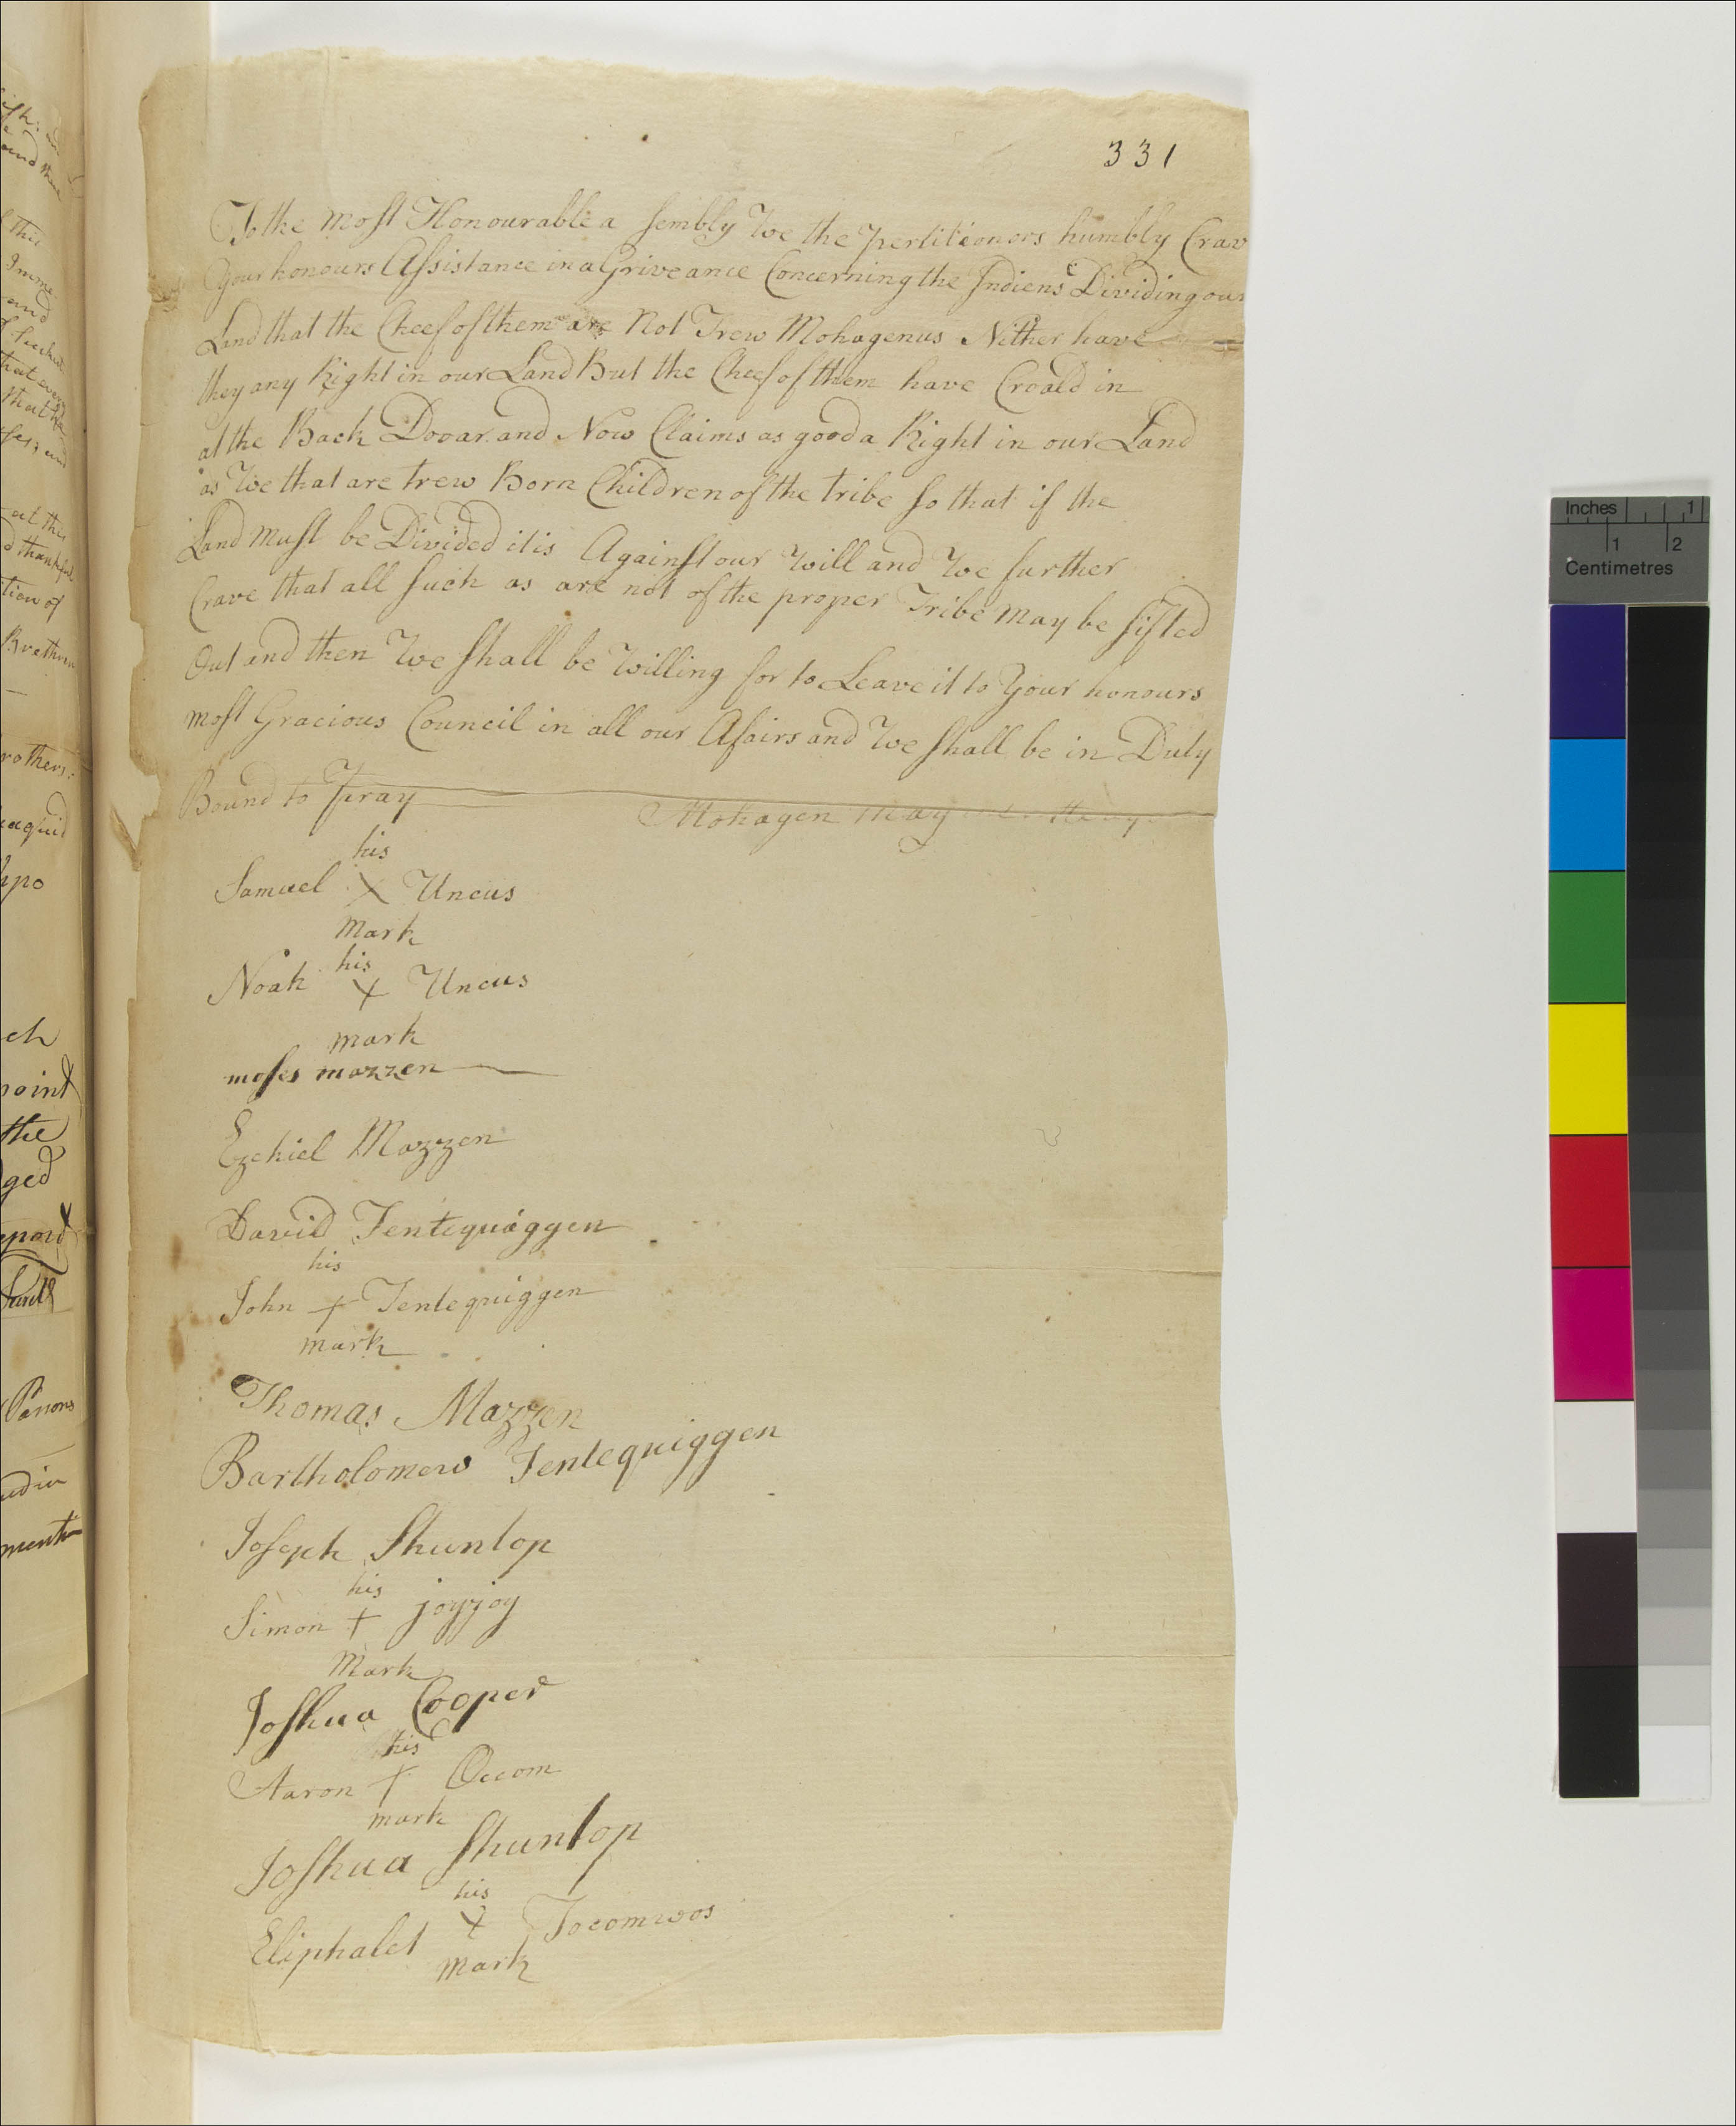 331
To the most Honourable a sembly We the pertitioners humbly Crav
Your honours Assistance in a Griveance Concerning the Indiens Dividing our
Land that the Cheef of them are Not Trew Mohagenus Nither have
they any Right in our Land But the Cheef of them have Croald in
at the Back Dooar and Now Claims as good a Right in our Land
as We that are trew Born Children of the tribe so that if the
Land must be Divided it is Against our Will and We further
Crave that all such as are not of the proper Tribe may be sifted
Out and then We shall be Willing for to Leave it to Your honours
most Gracious Council in all our Afairs and We shall be in Duty
Bound to Pray
Mohagen May
his
Samuel X Uncus
Mark
his
Noah X Uncus
mark
moses mazzen
Ezekiel Mazzen
David Tentequaggen
his
John + Tentequiggen
mark
Thomas Mazzen
Bartholomew Tentequiggen
Joseph Shuntop
his
Simon + joyjoy
Mark
Joshua Cooper
his
Aaron + Occom
mark
Joshua Shuntop
his
Eliphalet X Tocomwos
mark
Inches 1
1 2
Centimetres
and
this
and
at this
thankful
tion of
Brethren
rothers
ch
point
the
ged